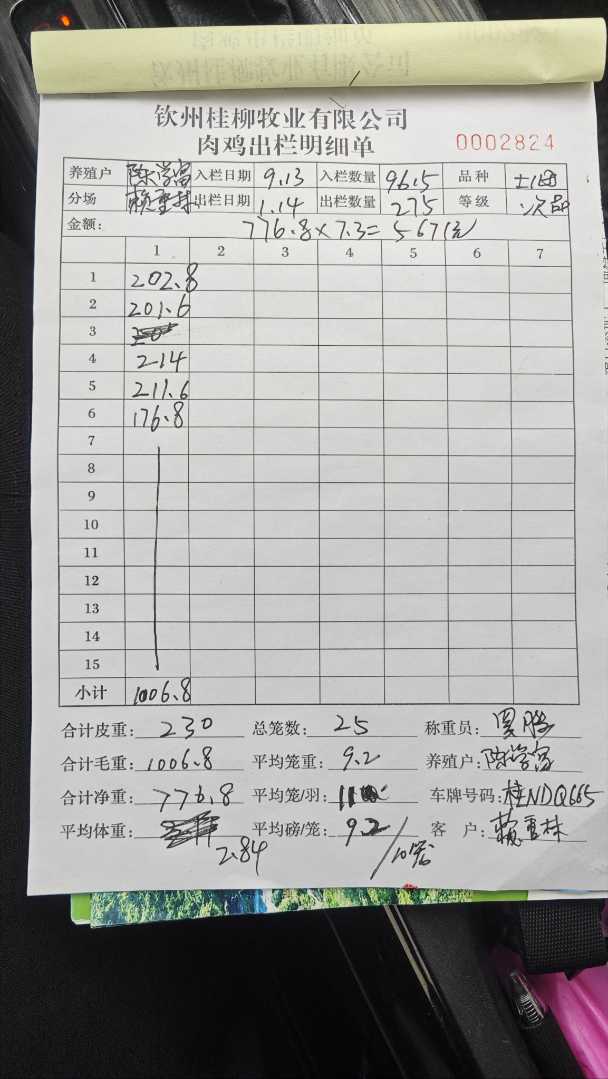 钦州桂柳牧业有限公司
肉鸡出栏明细单 0002824
养殖户 陈学富 入栏日期 9.13 入栏数量 9615 品种 土1
分场 赖重林 出栏日期 1.14 出栏数量 275 等级 次品
金额: 776.8×7.3=5671元
1 2 3 4 5 6 7
1 202.8
2 201.6
3
4 214
5 211.6
6 176.8
7
8
9
10
11
12
13
14
15
小计 1006.8
合计皮重: 230 总笼数: 25 称重员:
合计毛重: 1006.8 平均笼重: 9.2 养殖户: 陈学富
合计净重: 776.8 平均笼/羽: 11 车牌号码: 桂NDQ665
平均体重: 2.84 平均磅/笼: 9.2/10笼 客 户: 赖重林